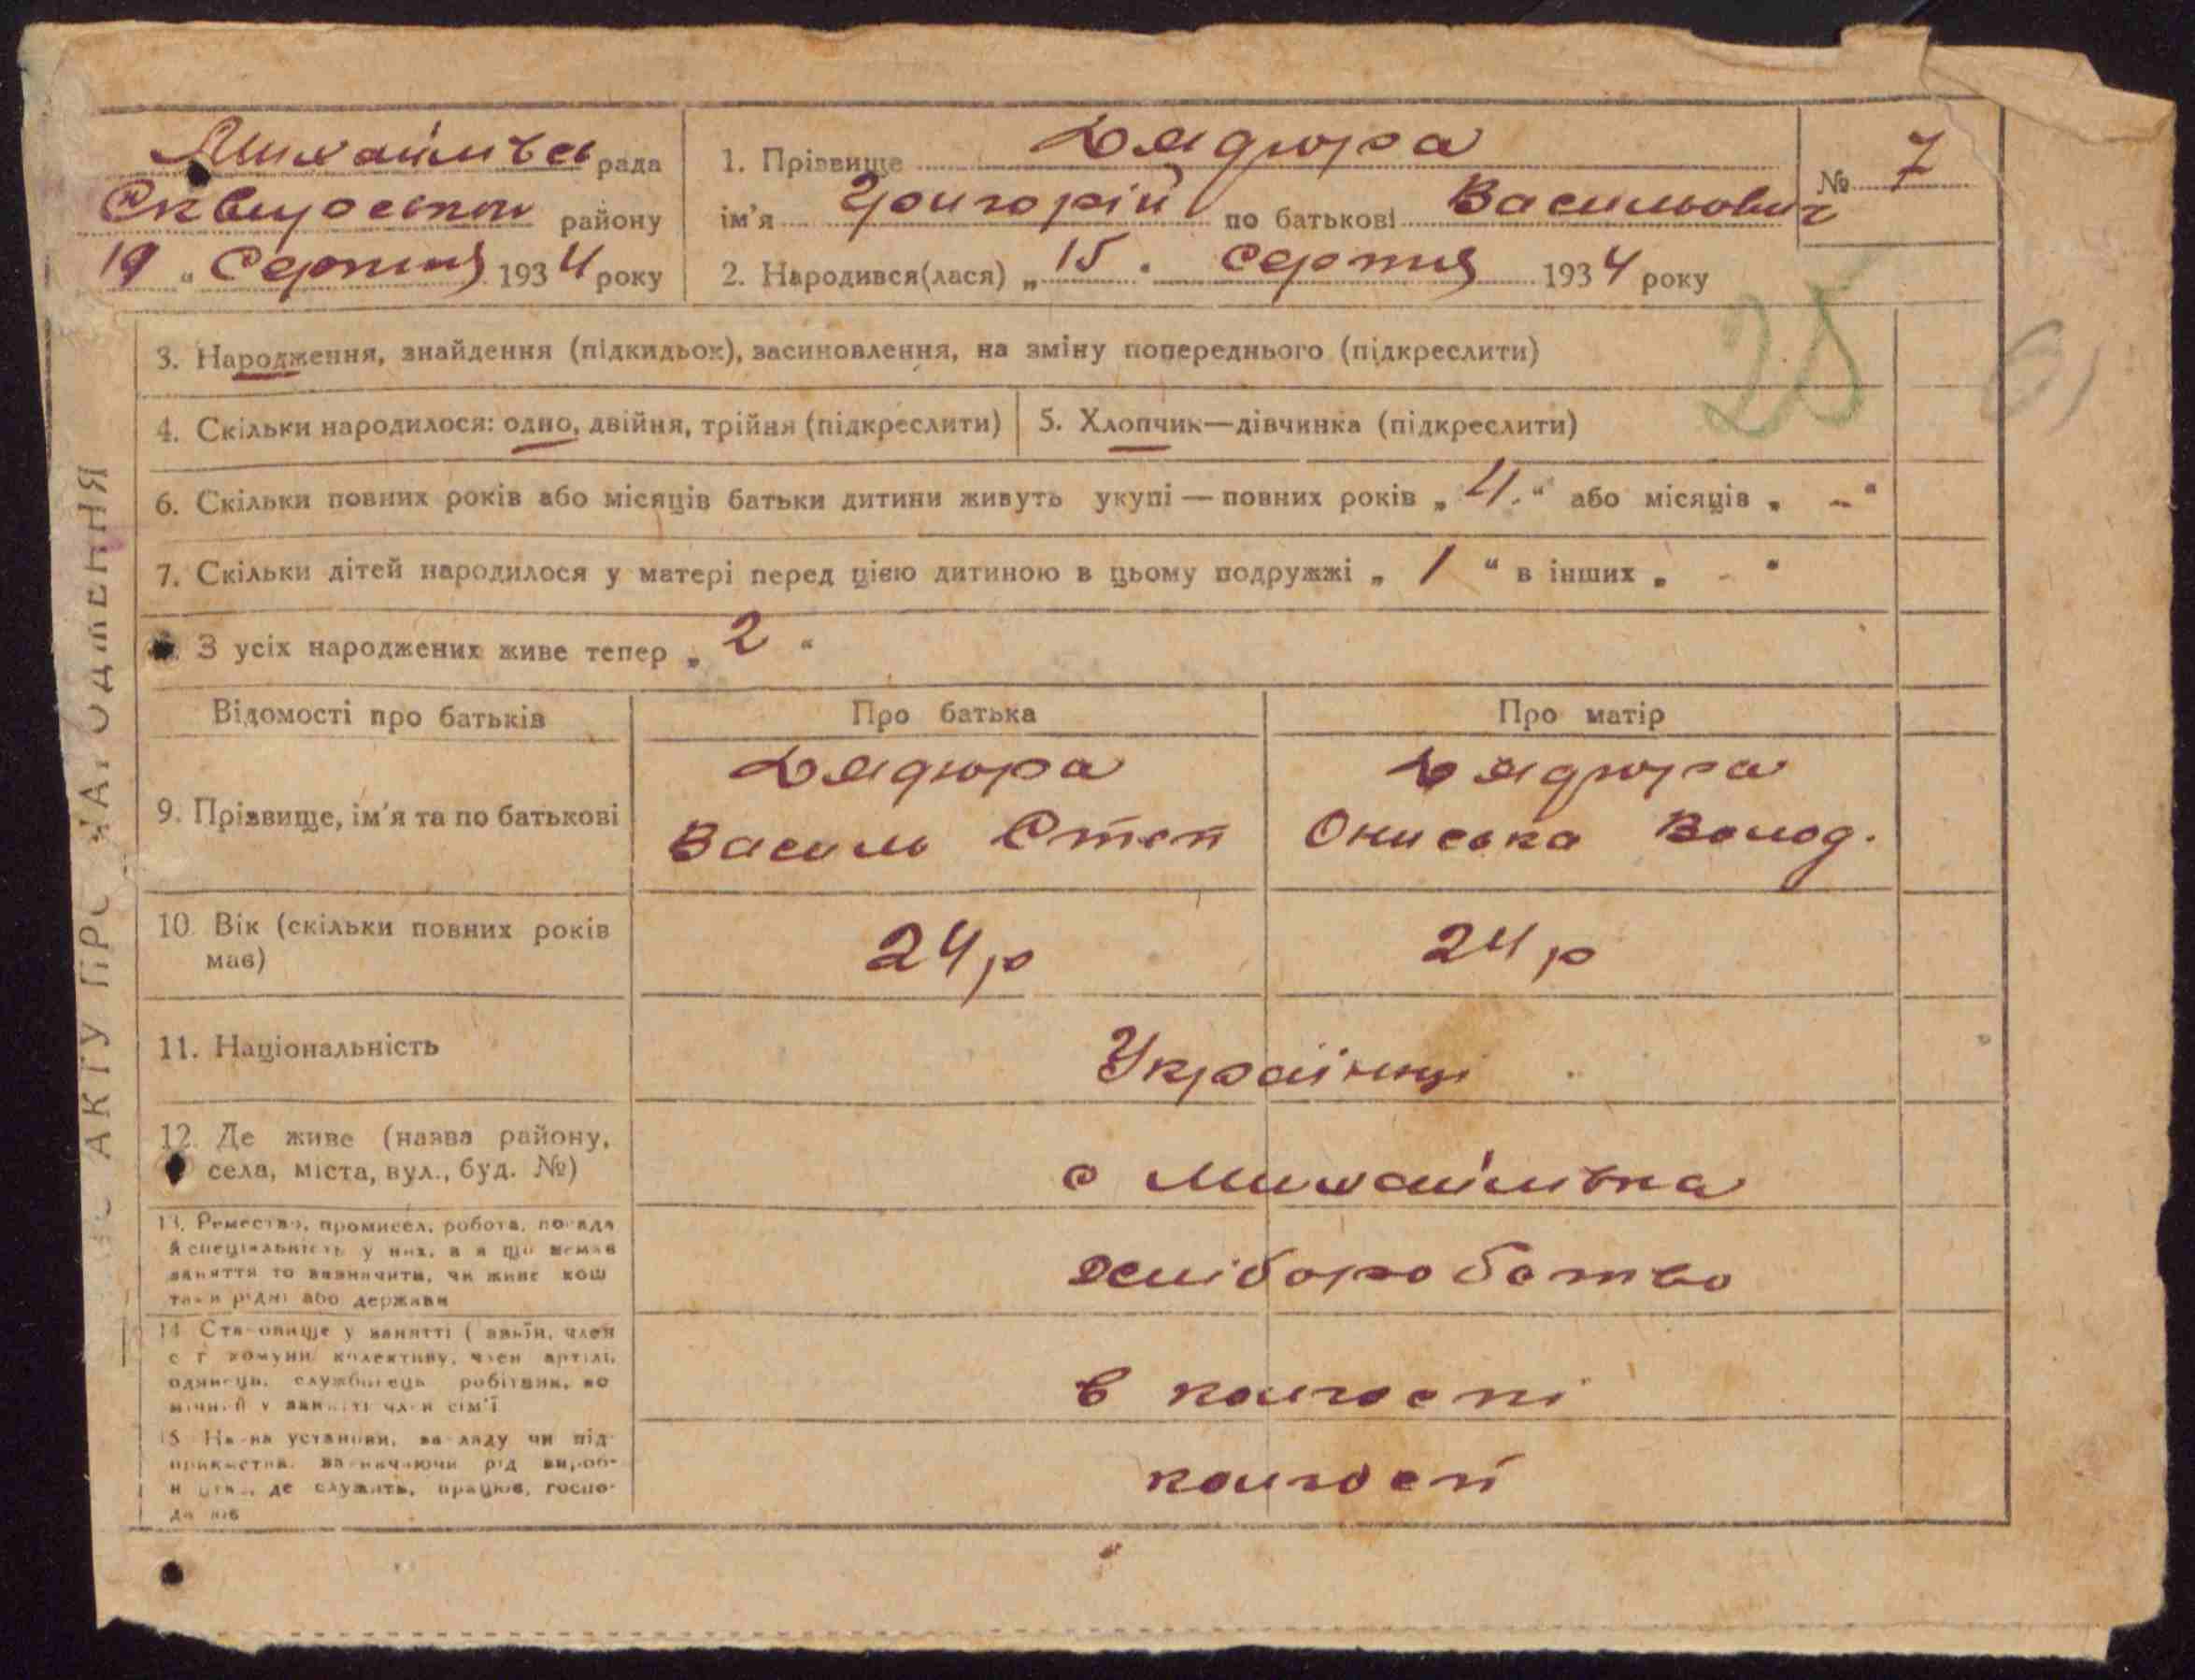 Михайлівськ рада
Сквирського району
19 „ Серпня 1934 року
1. Прізвище Дядюра
ім'я Григорій по батькові Васильович
№ 7
2. Народився(лася) „ 15 " серпня 1934 року
25
3. Народження, знайдення (підкидьок), засиновлення, на зміну попереднього (підкреслити)
4. Скільки народилося: одно, двійня, трійня (підкреслити)
5. Хлопчик—дівчинка (підкреслити)
6. Скільки повних років або місяців батьки дитини живуть укупі — повних років „ 4. " або місяців „ - "
7. Скільки дітей народилося у матері перед цією дитиною в цьому подружжі „ 1 " в інших „ - "
З усіх народжених живе тепер „ 2 "
Відомості про батьків
Про батька
Про матір
9. Прізвище, ім'я та по батькові
Дядюра
Василь Степ
Дядюра
Ониська Волод.
10. Вік (скільки повних років
має)
24 р
24 р
11. Національність
Українці
12. Де живе (назва району,
села, міста, вул., буд. №)
с Михайлівка
13. Ремество, промисел, робота, посада
й спеціальність у них, а я що немає
заняття то зазначити, чи живе кош
рідні або держави
хліборобство
14 Становище у занятті ( член
с г комуни колективу, член артілі,
одинець, службовець робітник, по
у занятті член сім'ї
в колгоспі
15 На установи, закладу чи під
зазначаючи рід вироб-
де служить, працює, госпо-
колгосп
АКТУ ПРО НАРОДЖЕННЯ